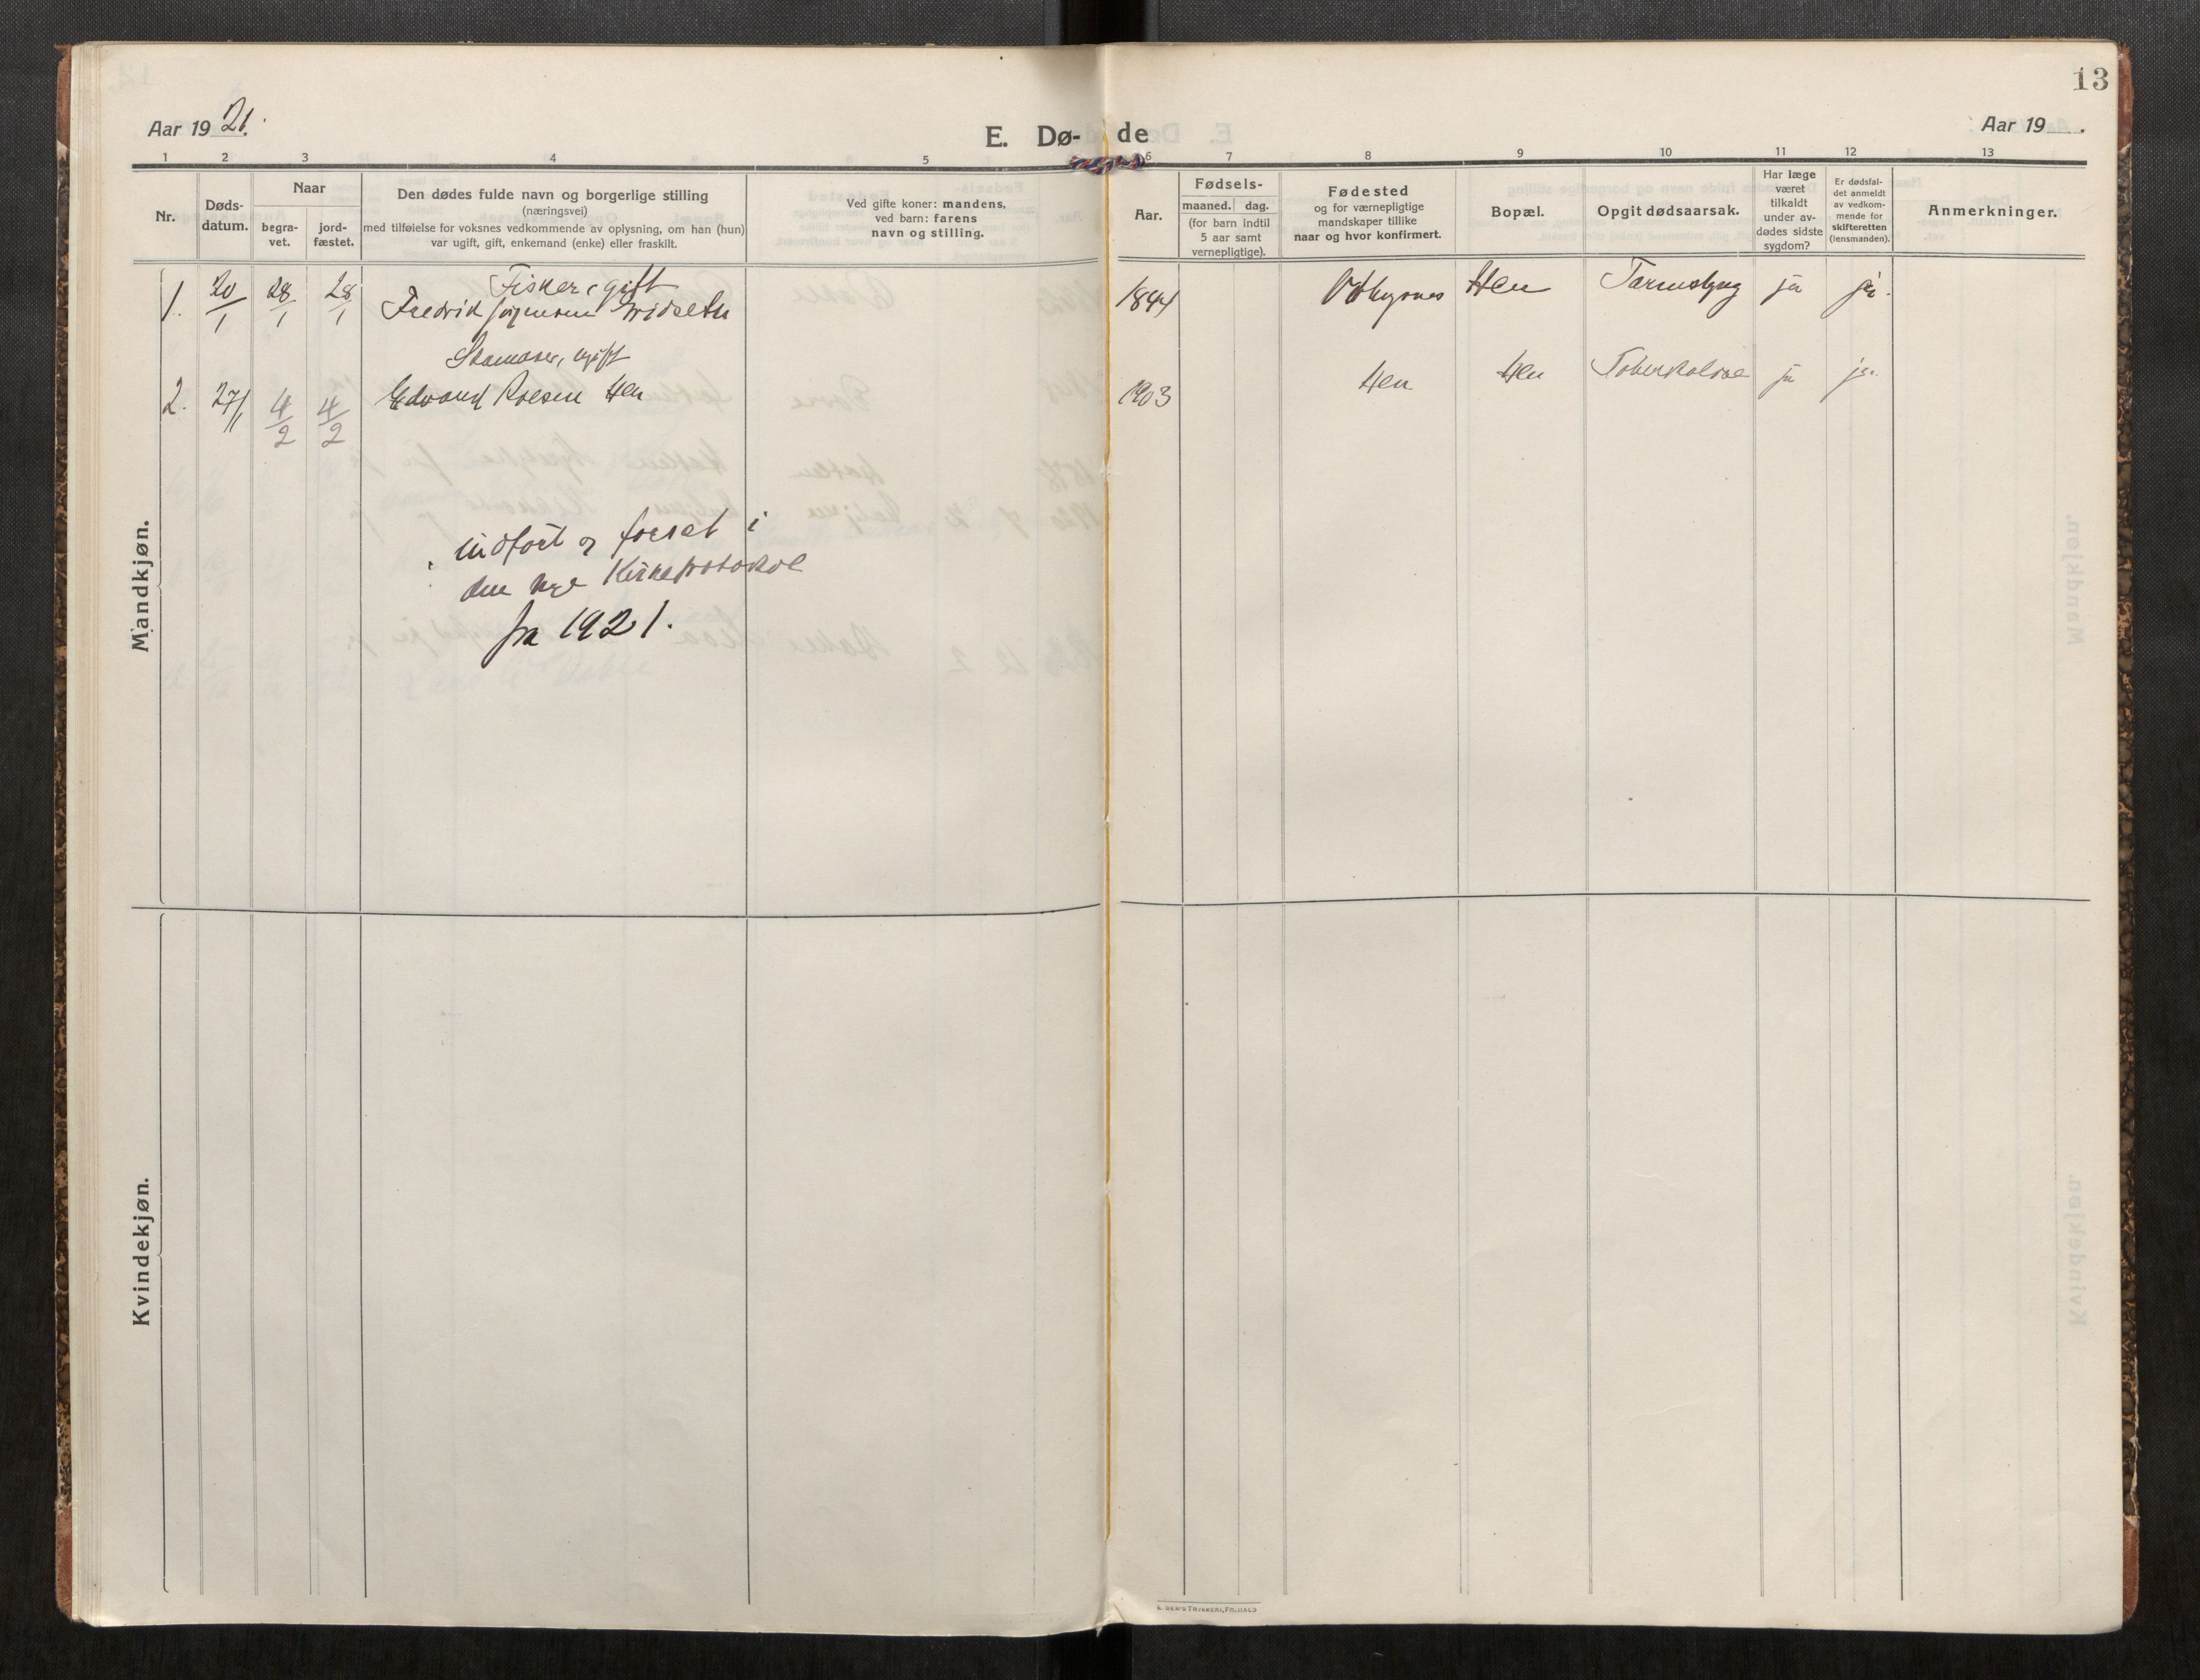 13
Aar 1921.
E. Dø- de
Aar 19 .
1 2 3 4 5 6 7 8 9 10 11 12 13
Nr.
Døds-
datum.
Naar
begra-
vet.
jord-
fæstet.
Den dødes fulde navn og borgerlige stilling
(næringsvei)
med tilføielse for voksnes vedkommende av oplysning, om han (hun)
var ugift, gift, enkemand (enke) eller fraskilt.
Ved gifte koner: mandens,
ved barn: farens
navn og stilling.
Aar.
Fødsels-
maaned. dag.
(for barn indtil
5 aar samt
vernepligtige).
Fødested
og for værnepligtige
mandskaper tillike
naar og hvor konfirmert.
Bopæl.
Opgit dødsaarsak.
Har læge
været
tilkaldt
under av-
dødes sidste
sygdom?
Er dødsfal-
det anmeldt
av vedkom-
mende for
skifteretten
(lensmanden).
Anmerkninger.
Mandkjøn.
Fisker, gift
1. 20/1 28/1 28/1 Fredrik 1844 Hen ja ja.
ugift
2. 27/1 4/2 4/2 Edvard Hen 1903 Hen Hen ja ja.
indført og forsat i
den nye Kirkeprotokol
fra 1921.
Kvindekjøn.